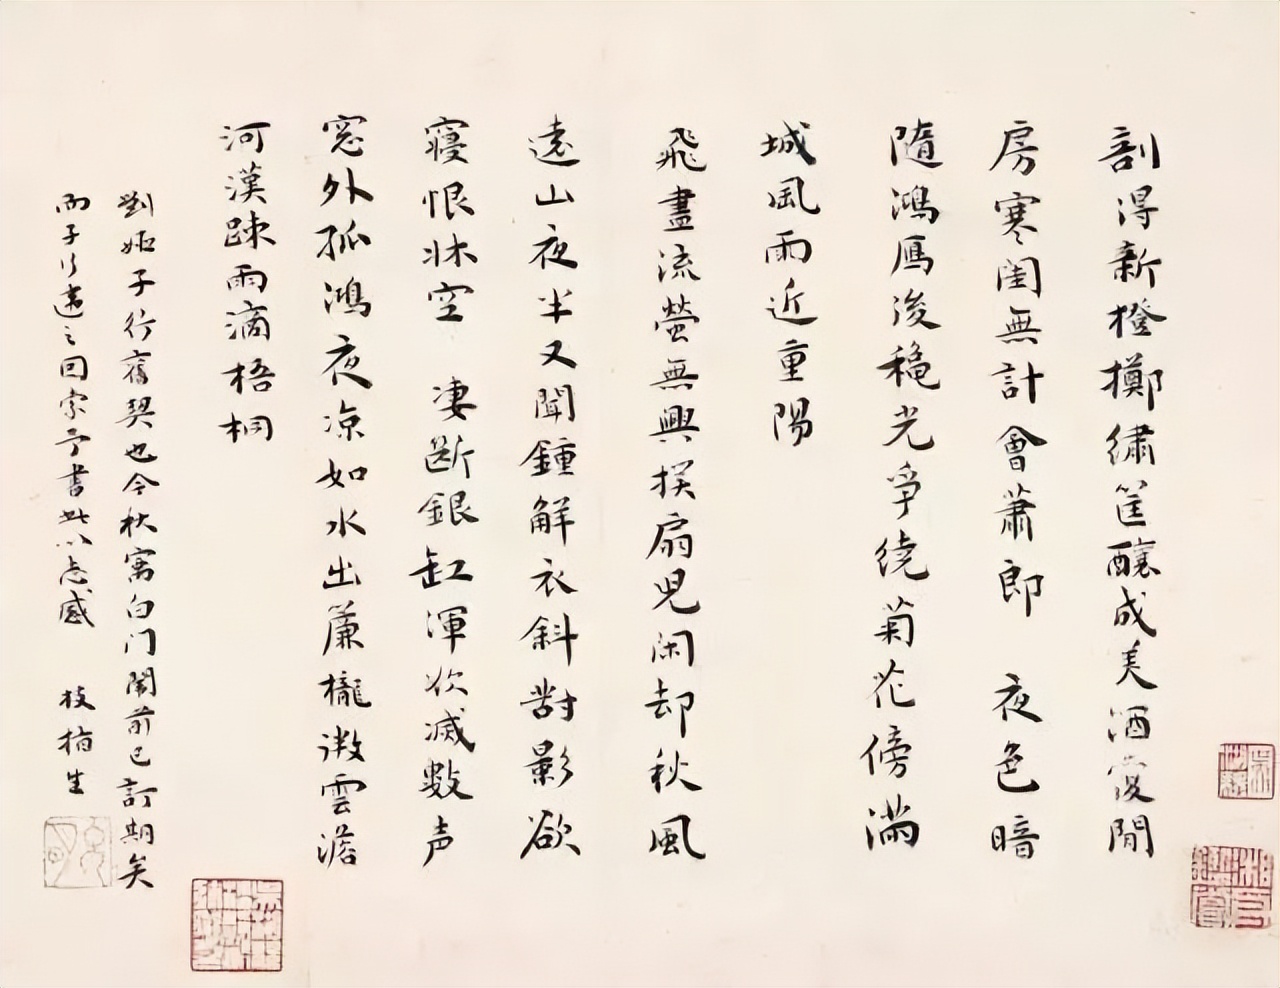 剖得新橙擲繡筐釀成美酒愛閒
房寒閨無計會蕭郎　夜色暗
隨鴻鴈後秋光爭繞菊花傍滿
城風雨近重陽
飛盡流螢無興撲扇兒閑却秋風
遠山夜半又聞鍾解衣斜對影欲
寢恨牀空　凄斷銀缸渾欲滅數声
窓外孤鴻夜凉如水出簾櫳微雲澹
河漢踈雨滴梧桐
劉姬子行舊契也今秋寓白门闈前已訂期矣
而子行違之回索予書此以志感　枝指生